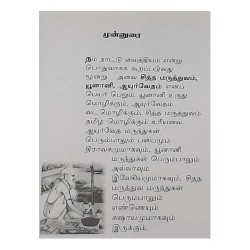 முன்னுரை
நம் நாட்டு வைத்தியம் என்று
பொதுவாகக் கூறப்படுவது
மூன்று. அவை சித்த மருத்துவம்,
யூனானி, ஆயுர்வேதம் எனப்
பெயர் பெறும். யூனானி உருது
மொழிக்கும், ஆயுர்வேதம்
வடமொழிக்கும், சித்த மருத்துவம்
தமிழ் மொழிக்கும் உரியவை.
ஆயுர்வேத மருந்துகள்
பெரும்பாலும் பஸ்பமும்
திராவகமுமாகவும், யூனானி
மருந்துகள் பெரும்பாலும்
அல்வாவும்
இலேகியமுமாகவும், சித்த
மருத்துவ மருந்துகள்
பெரும்பாலும்
எண்ணெயும்
கஷாயமுமாகவும்
இருக்கும்.